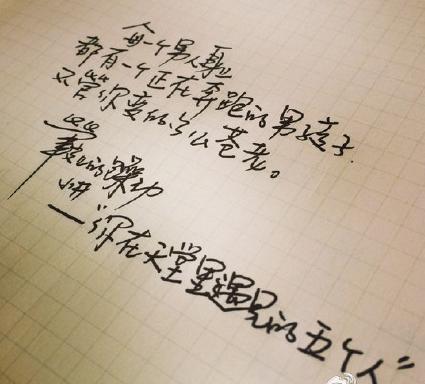 每一个男人
都有一个正在奔跑的男孩子
不管你变的多么苍老。
的躁动
—“你在天堂里遇见的五个人”